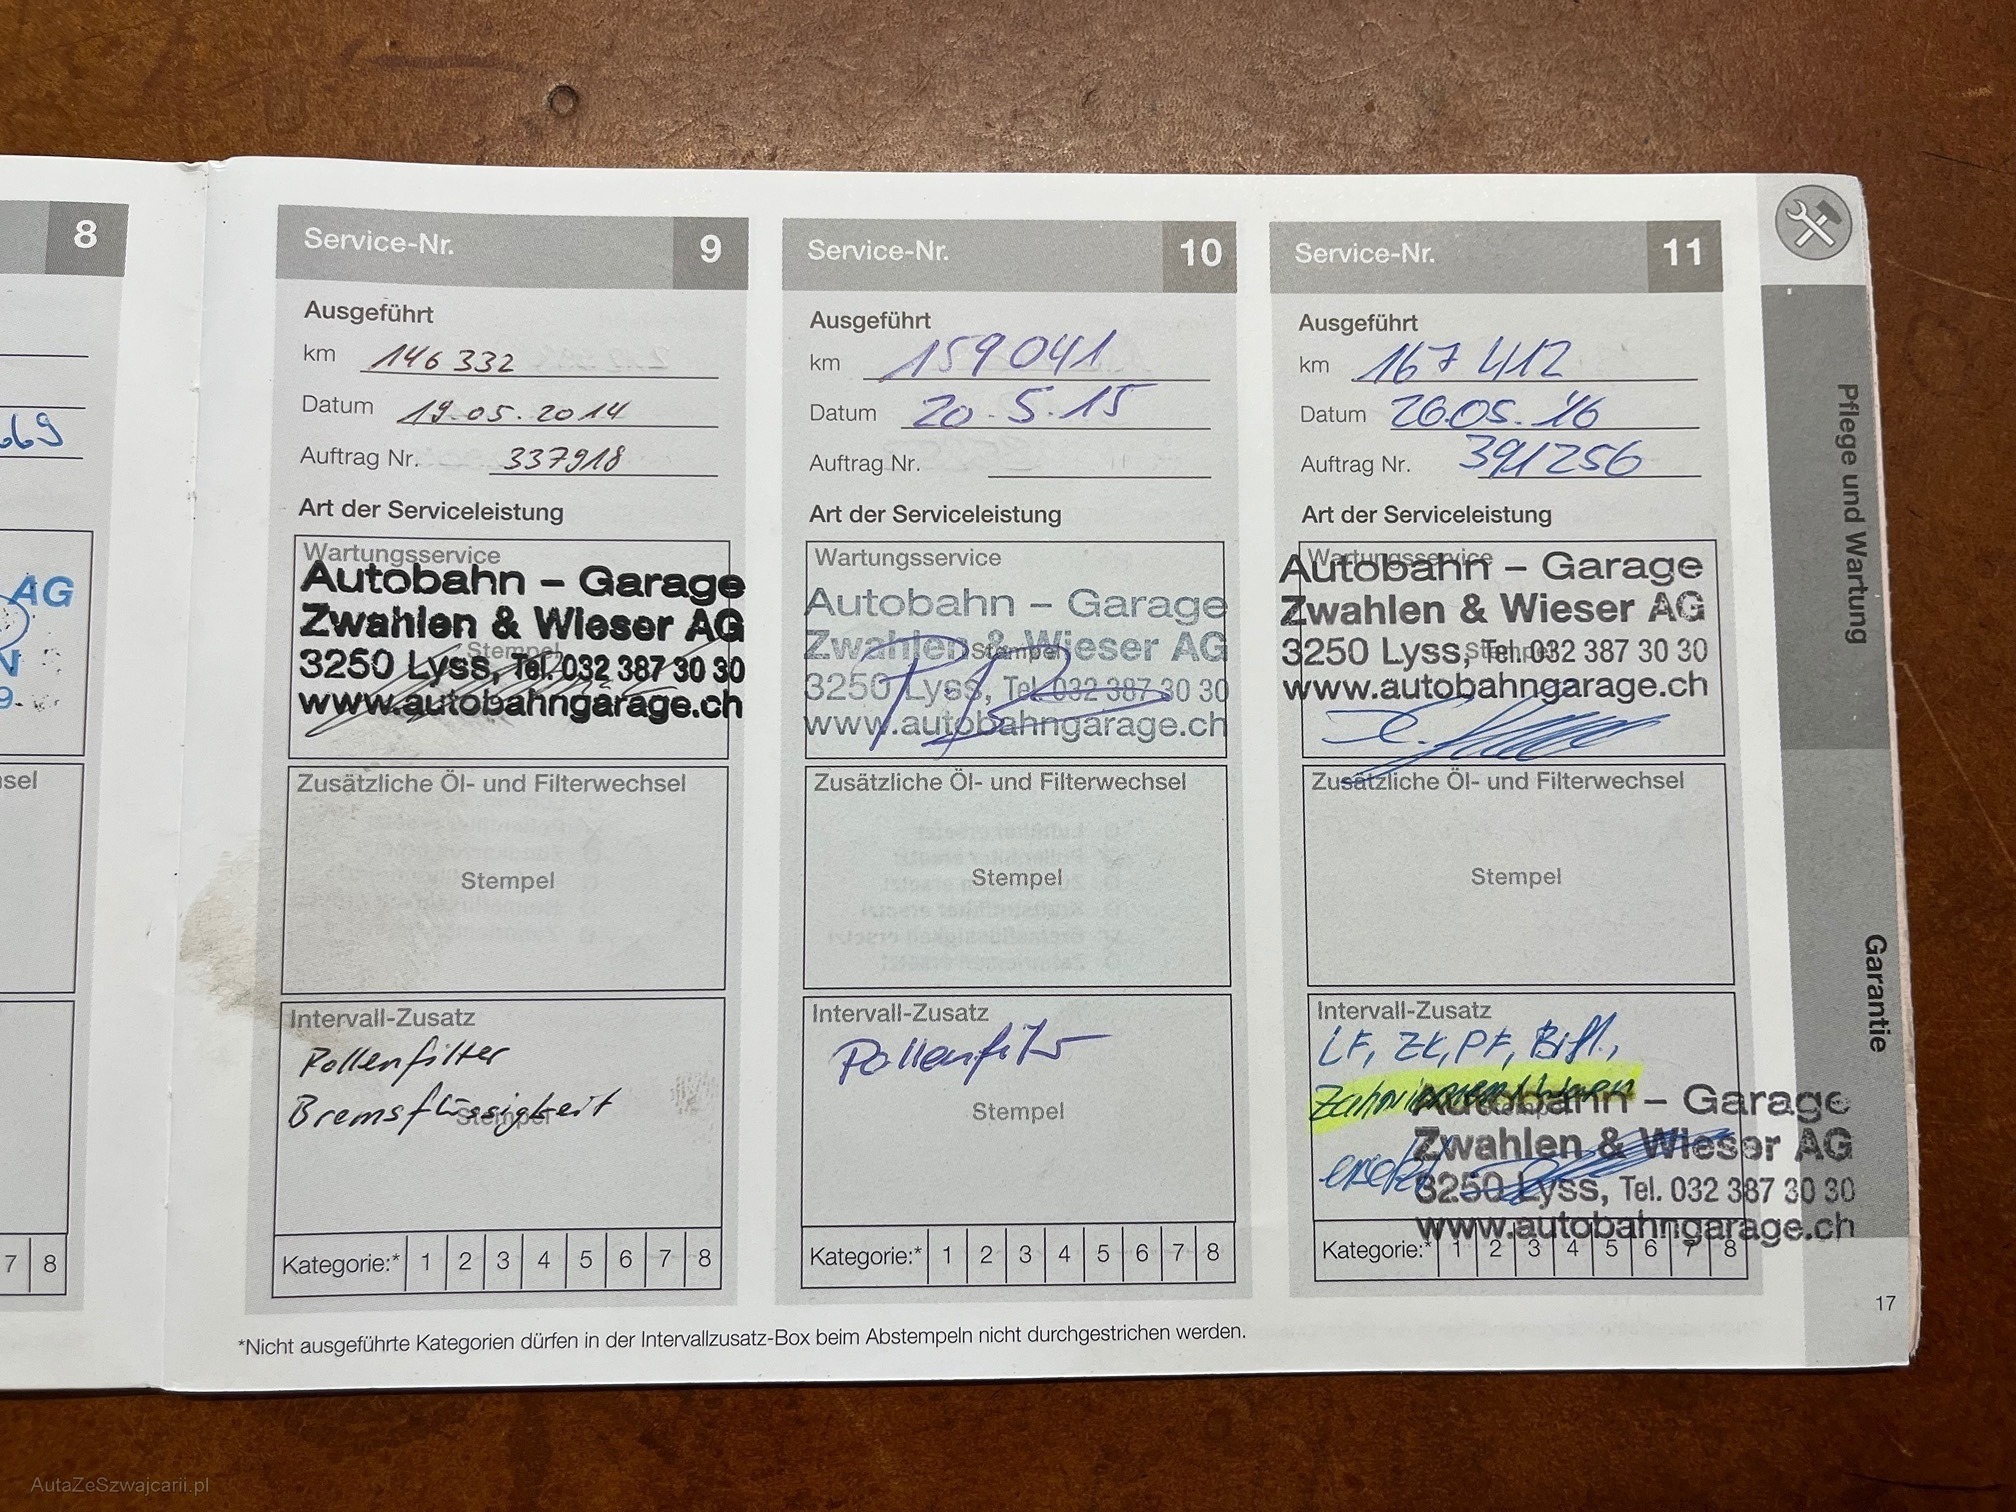 8
669
AG
N
9
sel
7 8
Service-Nr. 9
Ausgeführt
km 146 332
Datum 19.05.2014
Auftrag Nr. 337918
Art der Serviceleistung
Wartungsservice
Autobahn – Garage
Zwahlen & Wieser AG
Stempel
3250 Lyss, Tel. 032 387 30 30
www.autobahngarage.ch
Zusätzliche Öl- und Filterwechsel
Stempel
Intervall-Zusatz
Pollenfilter
Bremsflüssigkeit
Stempel
Kategorie:* 1 2 3 4 5 6 7 8
Service-Nr. 10
Ausgeführt
km 159041
Datum 20.5.15
Auftrag Nr.
Art der Serviceleistung
Wartungsservice
Autobahn – Garage
Zwahlen & Wieser AG
Stempel
3250 Lyss, Tel. 032 387 30 30
www.autobahngarage.ch
Zusätzliche Öl- und Filterwechsel
Stempel
Intervall-Zusatz
Pollenfilter
Stempel
Kategorie:* 1 2 3 4 5 6 7 8
Service-Nr. 11
Ausgeführt
km 167 412
Datum 26.05.'16
Auftrag Nr. 391256
Art der Serviceleistung
Wartungsservice
Autobahn – Garage
Zwahlen & Wieser AG
Stempel
3250 Lyss, Tel. 032 387 30 30
www.autobahngarage.ch
Zusätzliche Öl- und Filterwechsel
Stempel
Intervall-Zusatz
LF, ZK, PF, Bifl.,
Autobahn – Garage
Zwahlen & Wieser AG
ersetzt
3250 Lyss, Tel. 032 387 30 30
www.autobahngarage.ch
Kategorie:* 1 2 3 4 5 6 7 8
Pflege und Wartung
Garantie
17
*Nicht ausgeführte Kategorien dürfen in der Intervallzusatz-Box beim Abstempeln nicht durchgestrichen werden.
AutaZeSzwajcarii.pl